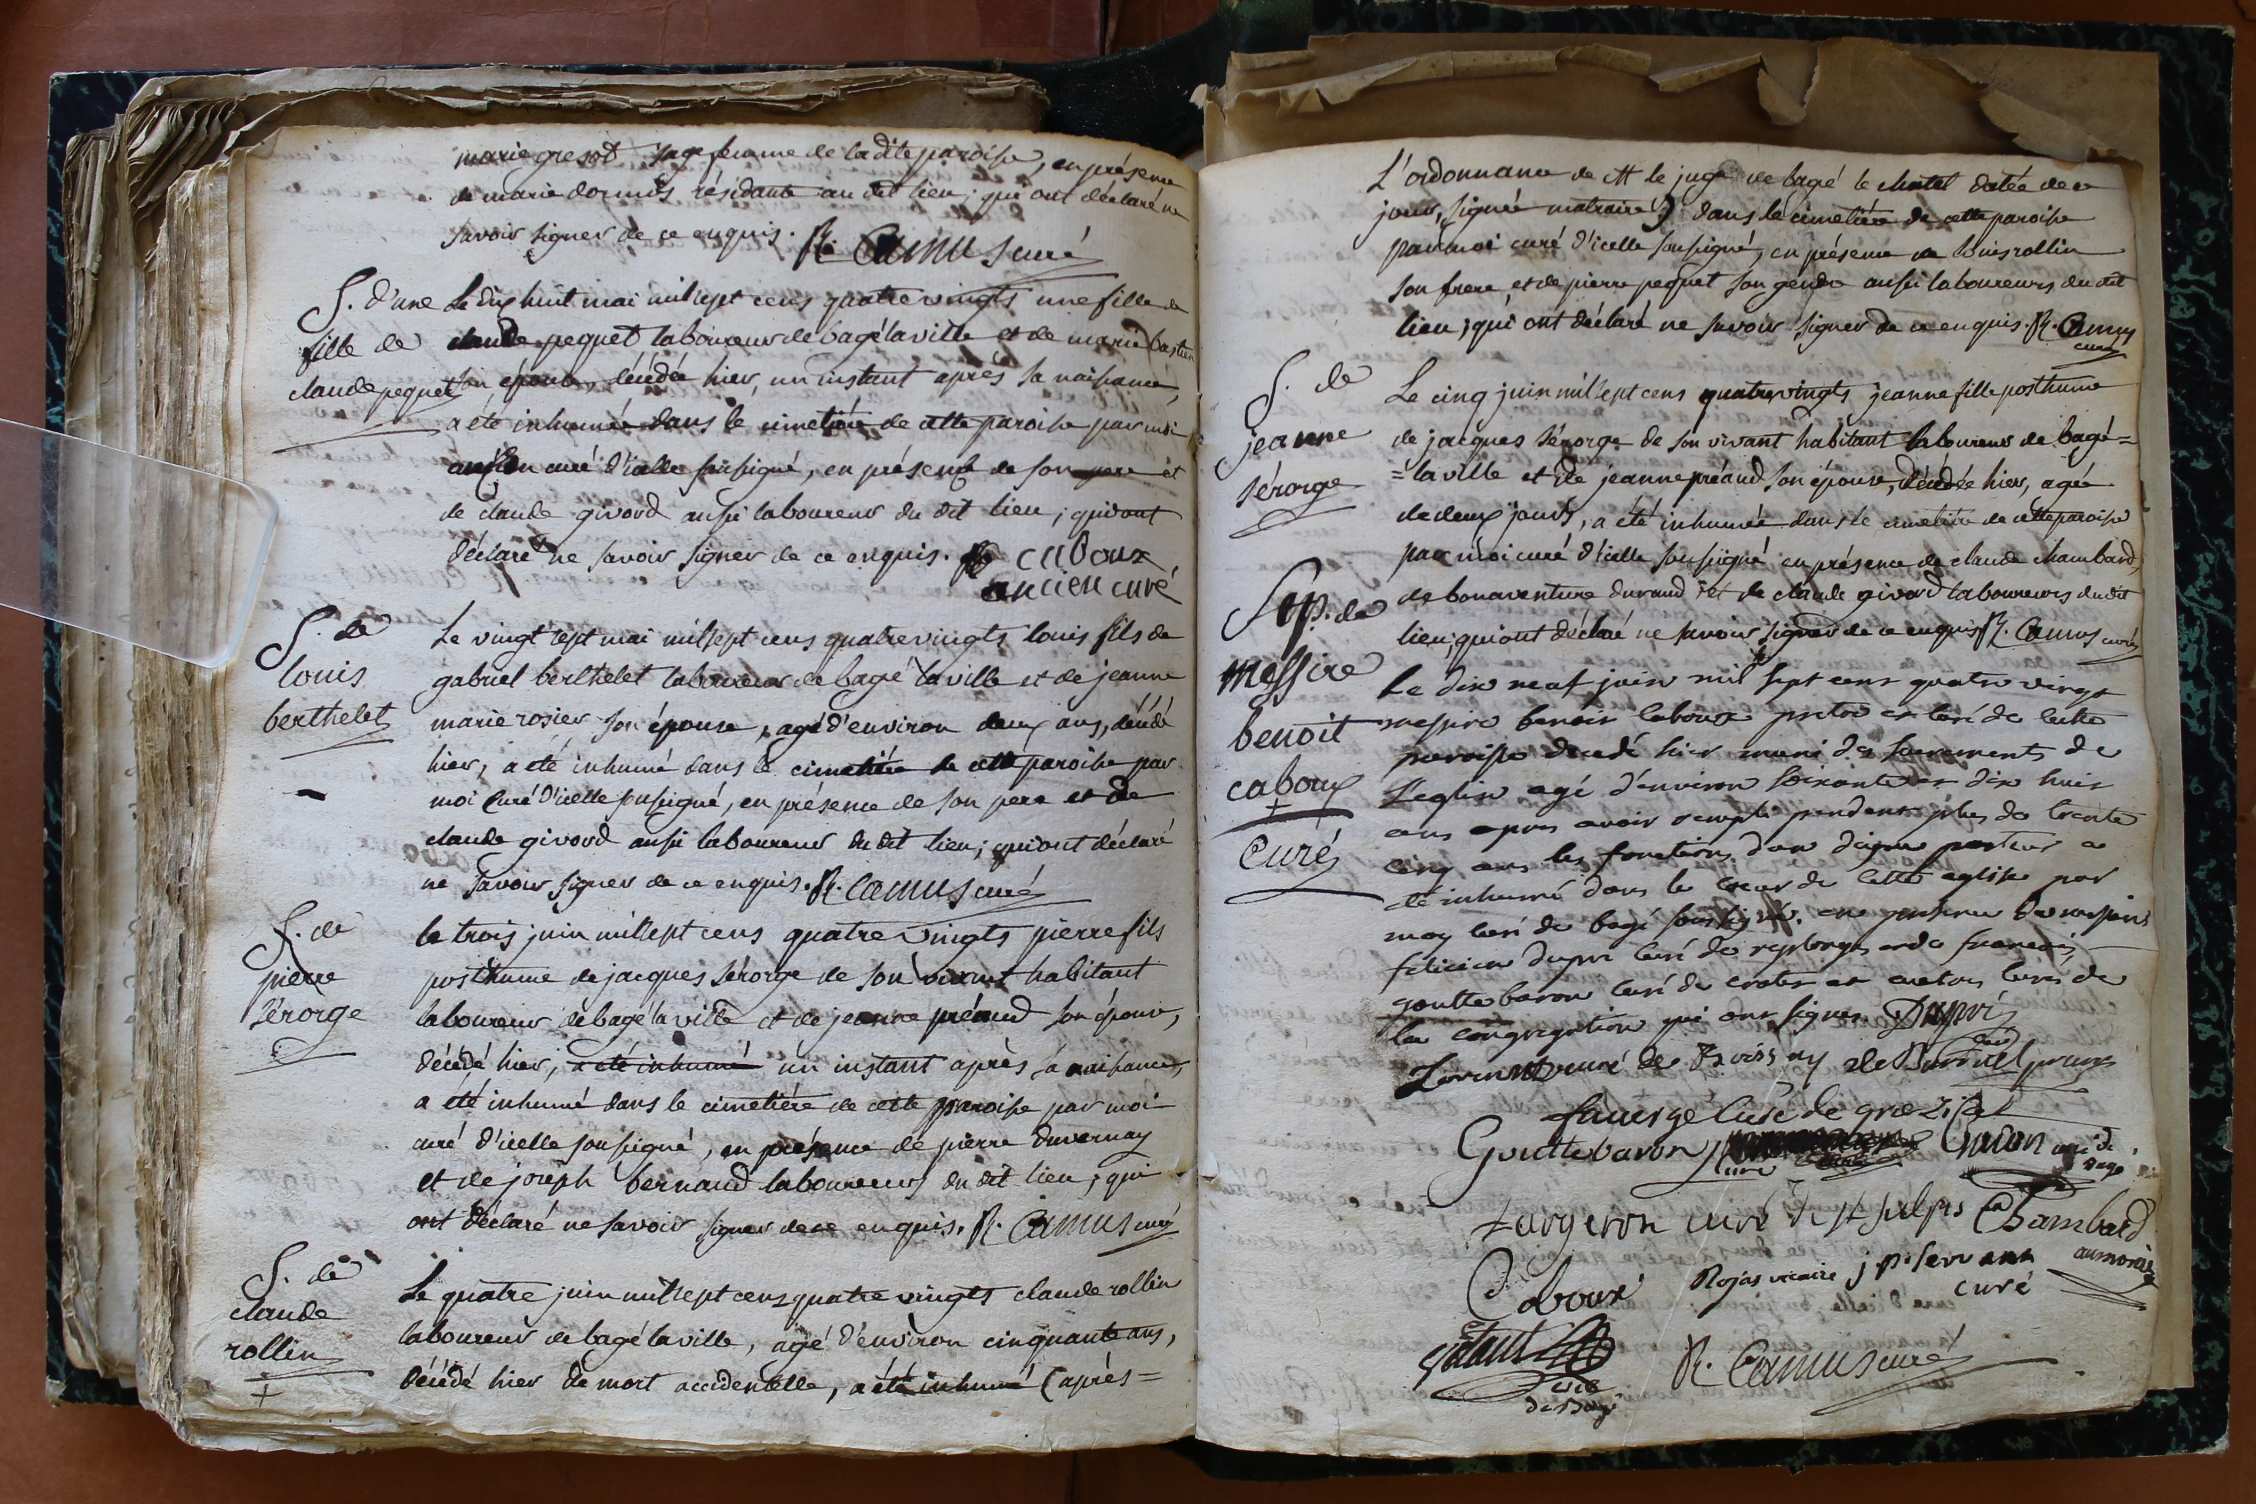 marie gresot sage femme de la dite paroisse, en présence
de marie dormis résidante au dit lieu; qui ont déclaré ne
savoir signer de ce enquis. R. Camus curé
S. d'une
fille de
claude pequet
Le dix huit mai mil sept cens quatre vingts une fille de
claude pequet laboureur de bagé la ville et de marie bastien
son épouse, décédée hier, un instant après sa naissance,
a été inhumée dans le cimetière de cette paroisse par moi
ancien curé d'icelle soussigné, en présence de son pere et
de claude givord aussi laboureur du dit lieu; qui ont
déclaré ne savoir signer de ce enquis. caboux
ancien curé
S. de
louis
berthelet
Le vingt sept mai mil sept cens quatre vingts louis fils de
gabriel berthelet laboureur de bagé la ville et de jeanne
marie rosier son épouse, agé d'environ deux ans, décédé
hier, a été inhumé dans le cimetière de cette paroisse par
moi Curé d'icelle soussigné, en présence de son pere et de
claude givord aussi laboureur du dit lieu; qui ont déclaré
ne savoir signer de ce enquis. R. Camus curé
S. de
pierre
sérorge
le trois juin mil sept cens quatre vingts pierre fils
posthume de jacques sérorge de son vivant habitant
laboureur de bagé la ville et de jeanne préaud son épouse,
décédé hier, a été inhumé un instant après sa naissance,
a été inhumé dans le cimetière de cette paroisse par moi
curé d'icelle soussigné, en présence de pierre duvernay
et de joseph bernaud laboureurs du dit lieu; qui
ont déclaré ne savoir signer de ce enquis. R. Camus curé
S. de
claude
rollin
+
Le quatre juin mil sept cens quatre vingts claude rollin
laboureur de bagé la ville, agé d'environ cinquante ans,
décédé hier de mort accidentelle, a été inhumé (après=
L'ordonnance de M le juge de bagé le chatel datée de ce
jour, signée matraire) dans le cimetière de cette paroisse
par moi curé d'icelle soussigné, en présence de louis rollin
son frere et de pierre pequet son gendre aussi laboureurs du dit
lieu; qui ont déclaré ne savoir signer de ce enquis. R. Camus
curé
S. de
jeanne
sérorge
Le cinq juin mil sept cens quatre vingts jeanne fille posthume
de jacques sérorge de son vivant habitant laboureur de bagé=
=la ville et de jeanne préaud son épouse, décédée hier, agée
de deux jours, a été inhumée dans le cimetière de cette paroisse
par moi curé d'icelle soussigné en présence de claude chambard,
de bonaventure durand et de claude givord laboureurs du dit
lieu; qui ont déclaré ne savoir signer de ce enquis R. Camus curé
Sep. de
messire
benoit
caboux
+
Curé
Le dix neuf juin mil sept cent quatre vingt
messire benoit caboux pretre et curé de cette
paroisse decedé hier muni des sacrements de
L'eglise agé d'environ soixante et dix huit
ans apres avoir rempli pendant plus de trente
cinq ans les fonctions d'un digne pasteur a
été inhumé dans le coeur de cette eglise par
moy curé de bagé soussigné. en presence de messires
felicien dupré curé de replonges et de francois
gouttebaron curé de crotet et autres curés de
la congregation qui ont signés Dupré
curé
curé de Boissey
fauerge Curé de griezi
Gouttebaron curé
Chambard
aumonier
curé de st sulpis
Caboux
Rojas vicaire j. p. servant
curé
R. Camus curé